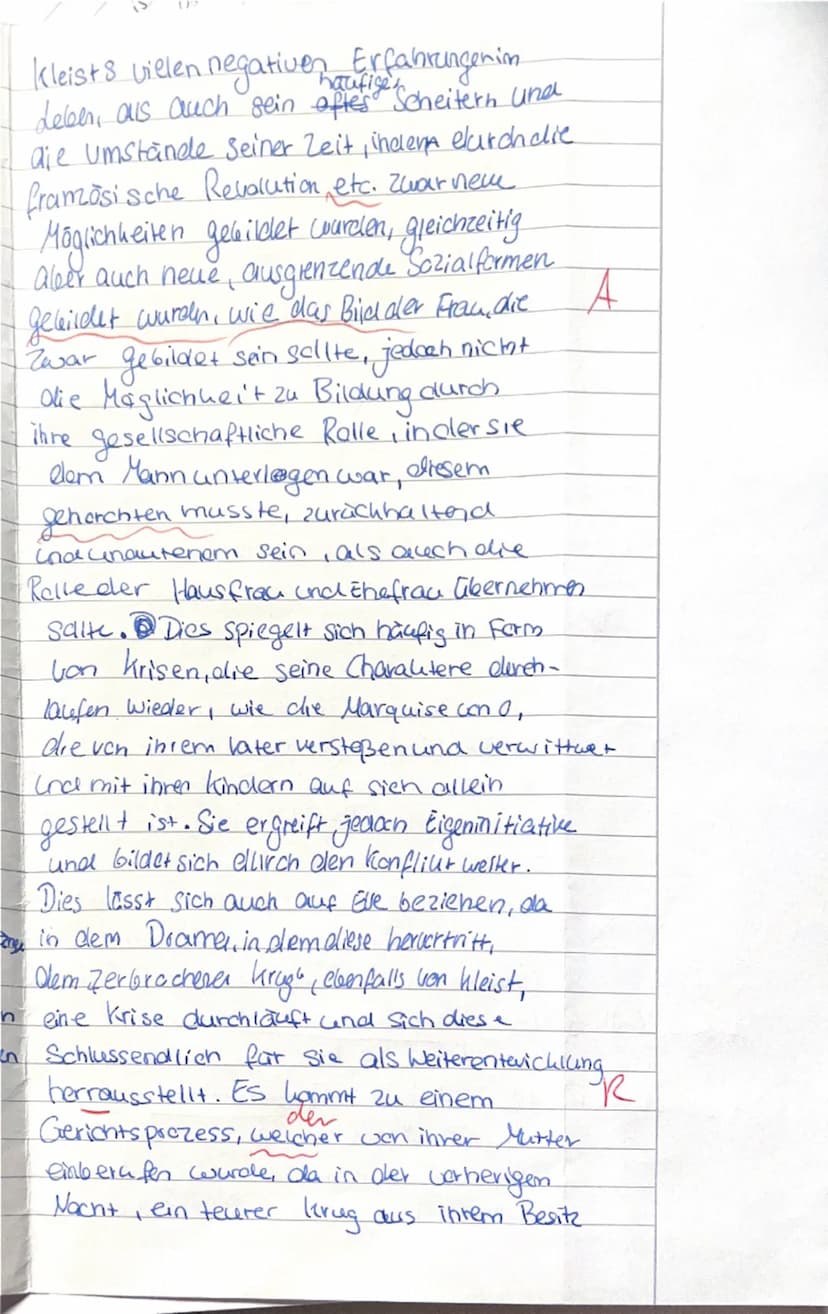 Kleists vielen negativen Erfahrungen im
häufiges
Leben, als auch sein oftes Scheitern und
die Umstände seiner Zeit, indem durch die
französische Revolution etc. zwar neue
Möglichkeiten gebildet wurden, gleichzeitig
aber auch neue, ausgrenzende Sozialformen
gebildet wurden, wie das Bild der Frau, die
A
zwar gebildet sein sollte, jedoch nicht
die Möglichkeit zu Bildung durch
ihre gesellschaftliche Rolle, in der sie
dem Mann unterlegen war, diesem
gehorchten musste, zurückhaltend
und sein, als auch die
Rolle der Hausfrau und Ehefrau übernehmen
sollte. Dies spiegelt sich häufig in Form
von Krisen, die seine Charaktere durch-
laufen wieder, wie die Marquise von O,
die von ihrem Vater verstoßen und verwittwet
und mit ihren Kindern auf sich allein
gestellt ist. Sie ergreift jedoch Eigeninitiative
und bildet sich durch den Konflikt weiter.
Dies lässt sich auch auf Eve beziehen, da
in dem Drama, in dem diese hervortritt,
dem zerbrochenen Krug", ebenfalls von Kleist,
n eine Krise durchläuft und sich diese
en Schlussendlich für sie als Weiterentwicklung
herrausstellt. Es kommt zu einem
R
der
Gerichtsprozess, welcher von ihrer Mutter
einberufen wurde, da in der vorherigen
Nacht, ein teurer Krug aus ihrem Besitz